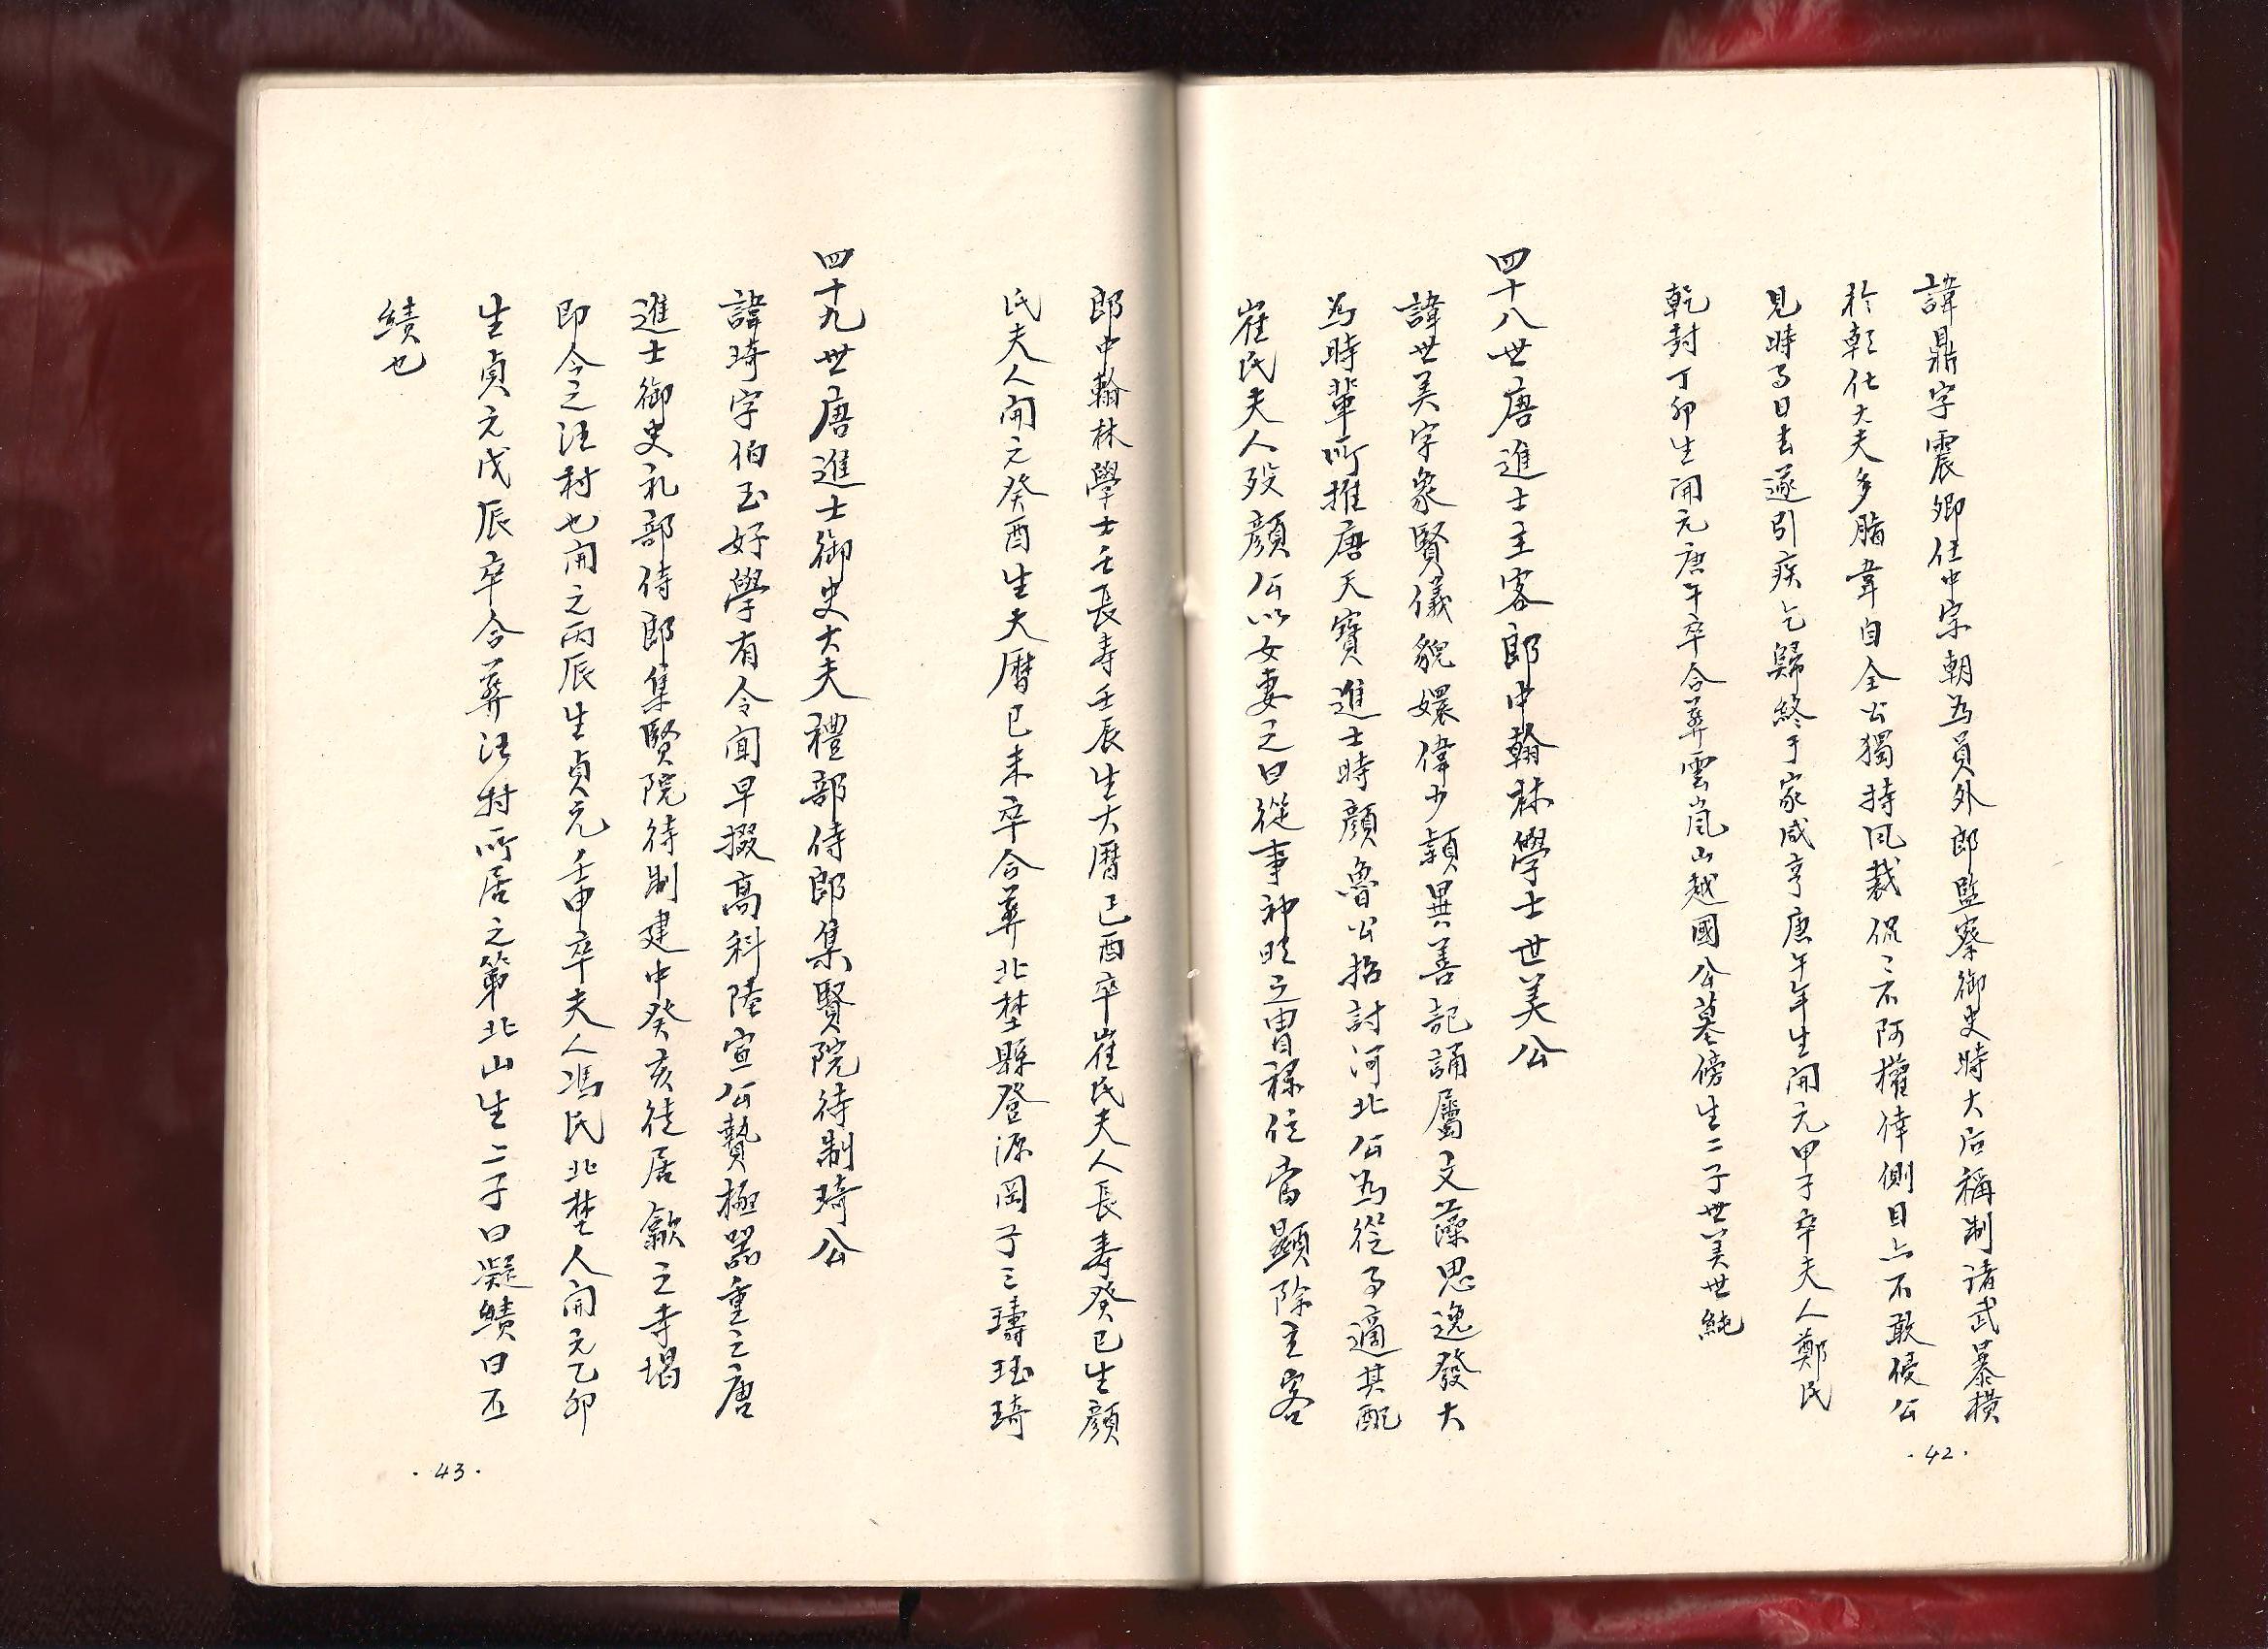 諱鼎字震卿仕中宗朝為員外郎監察御史時大后稱制諸武暴橫
於朝仕大夫多脂韋自全公獨持風裁侃〻不阿權倖側目亦不敢侵公
見時事日去遂引疾乞歸終于家咸亨庚午年生開元甲子卒夫人鄭氏
乾封丁卯生開元庚午卒合葬雲嵐山越國公墓傍生二子世美世純
四十八世唐進士主客郎中翰林學士世美公
諱世美字象賢儀貌嬛偉少穎異善記誦屬文藻思逸發大
為時輩所推唐天寶進士時顏魯公招討河北公為從事適其配
崔氏夫人歿顏公以女妻之曰從事神明之冑祿位當顯除主客
·42·
郎中翰林學士壬長寿壬辰生大曆己酉卒崔氏夫人長寿癸巳生顏
氏夫人開元癸酉生大曆己未卒合葬北埜縣登源岡子三璹珤琦
四十九世唐進士御史大夫禮部侍郎集賢院待制琦公
諱琦字伯玉好學有令聞早掇高科陸宣公贄極器重之唐
進士御史礼部侍郎集賢院待制建中癸亥徙居歙之寺塌
即今之汪村也開之丙辰生貞元壬申卒夫人馮氏北埜人開元乙卯
生貞元戊辰卒合葬汪村所居之第北山生二子曰凝績曰丕
績也
·43·